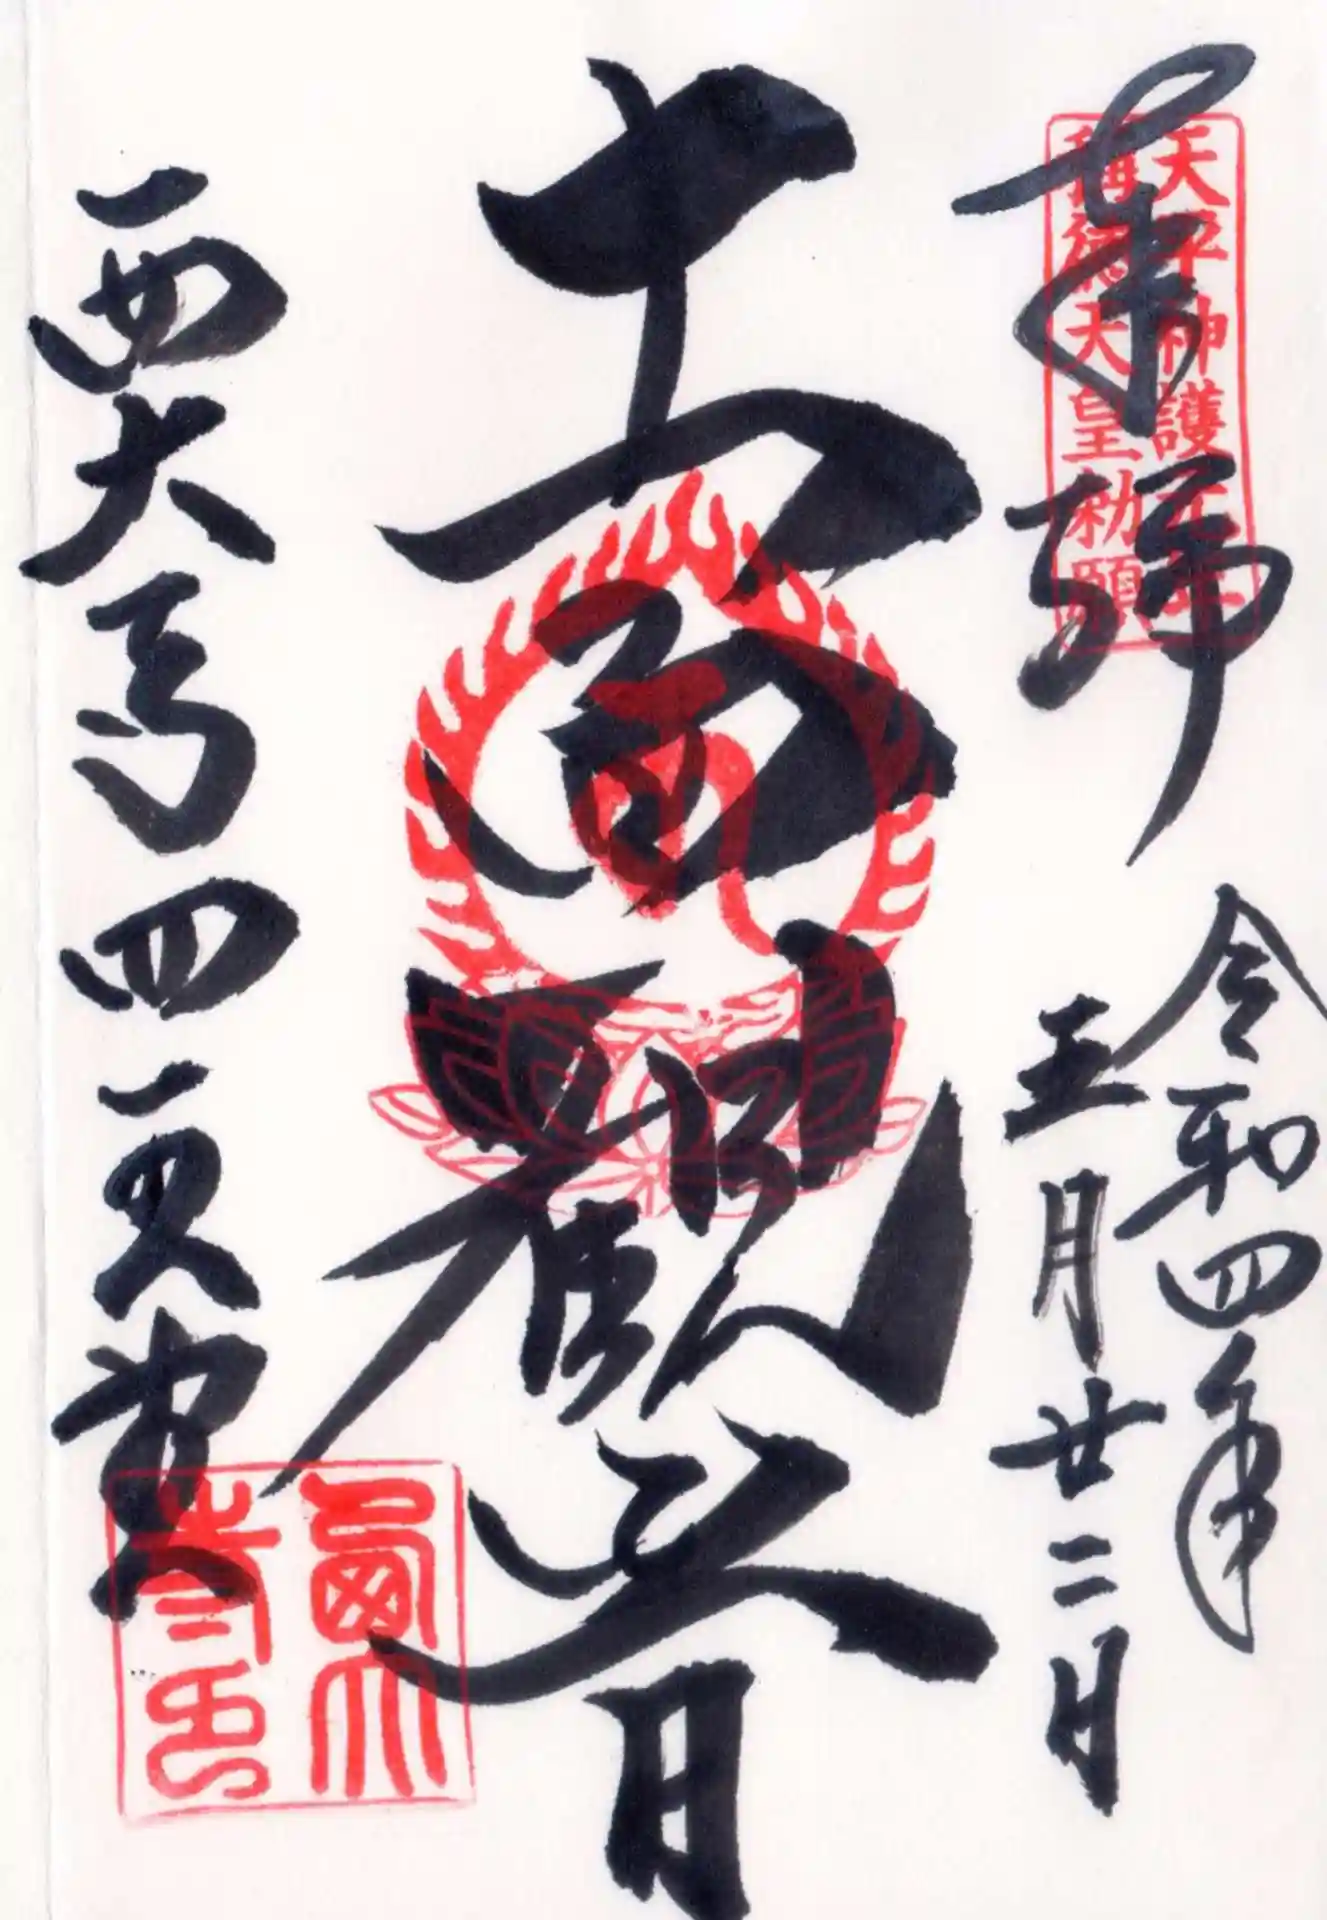 奉拝
天平神護元年
稱徳天皇勅願
令和四年
五月廿二日
十一面観音
西大寺四王堂
西大寺印